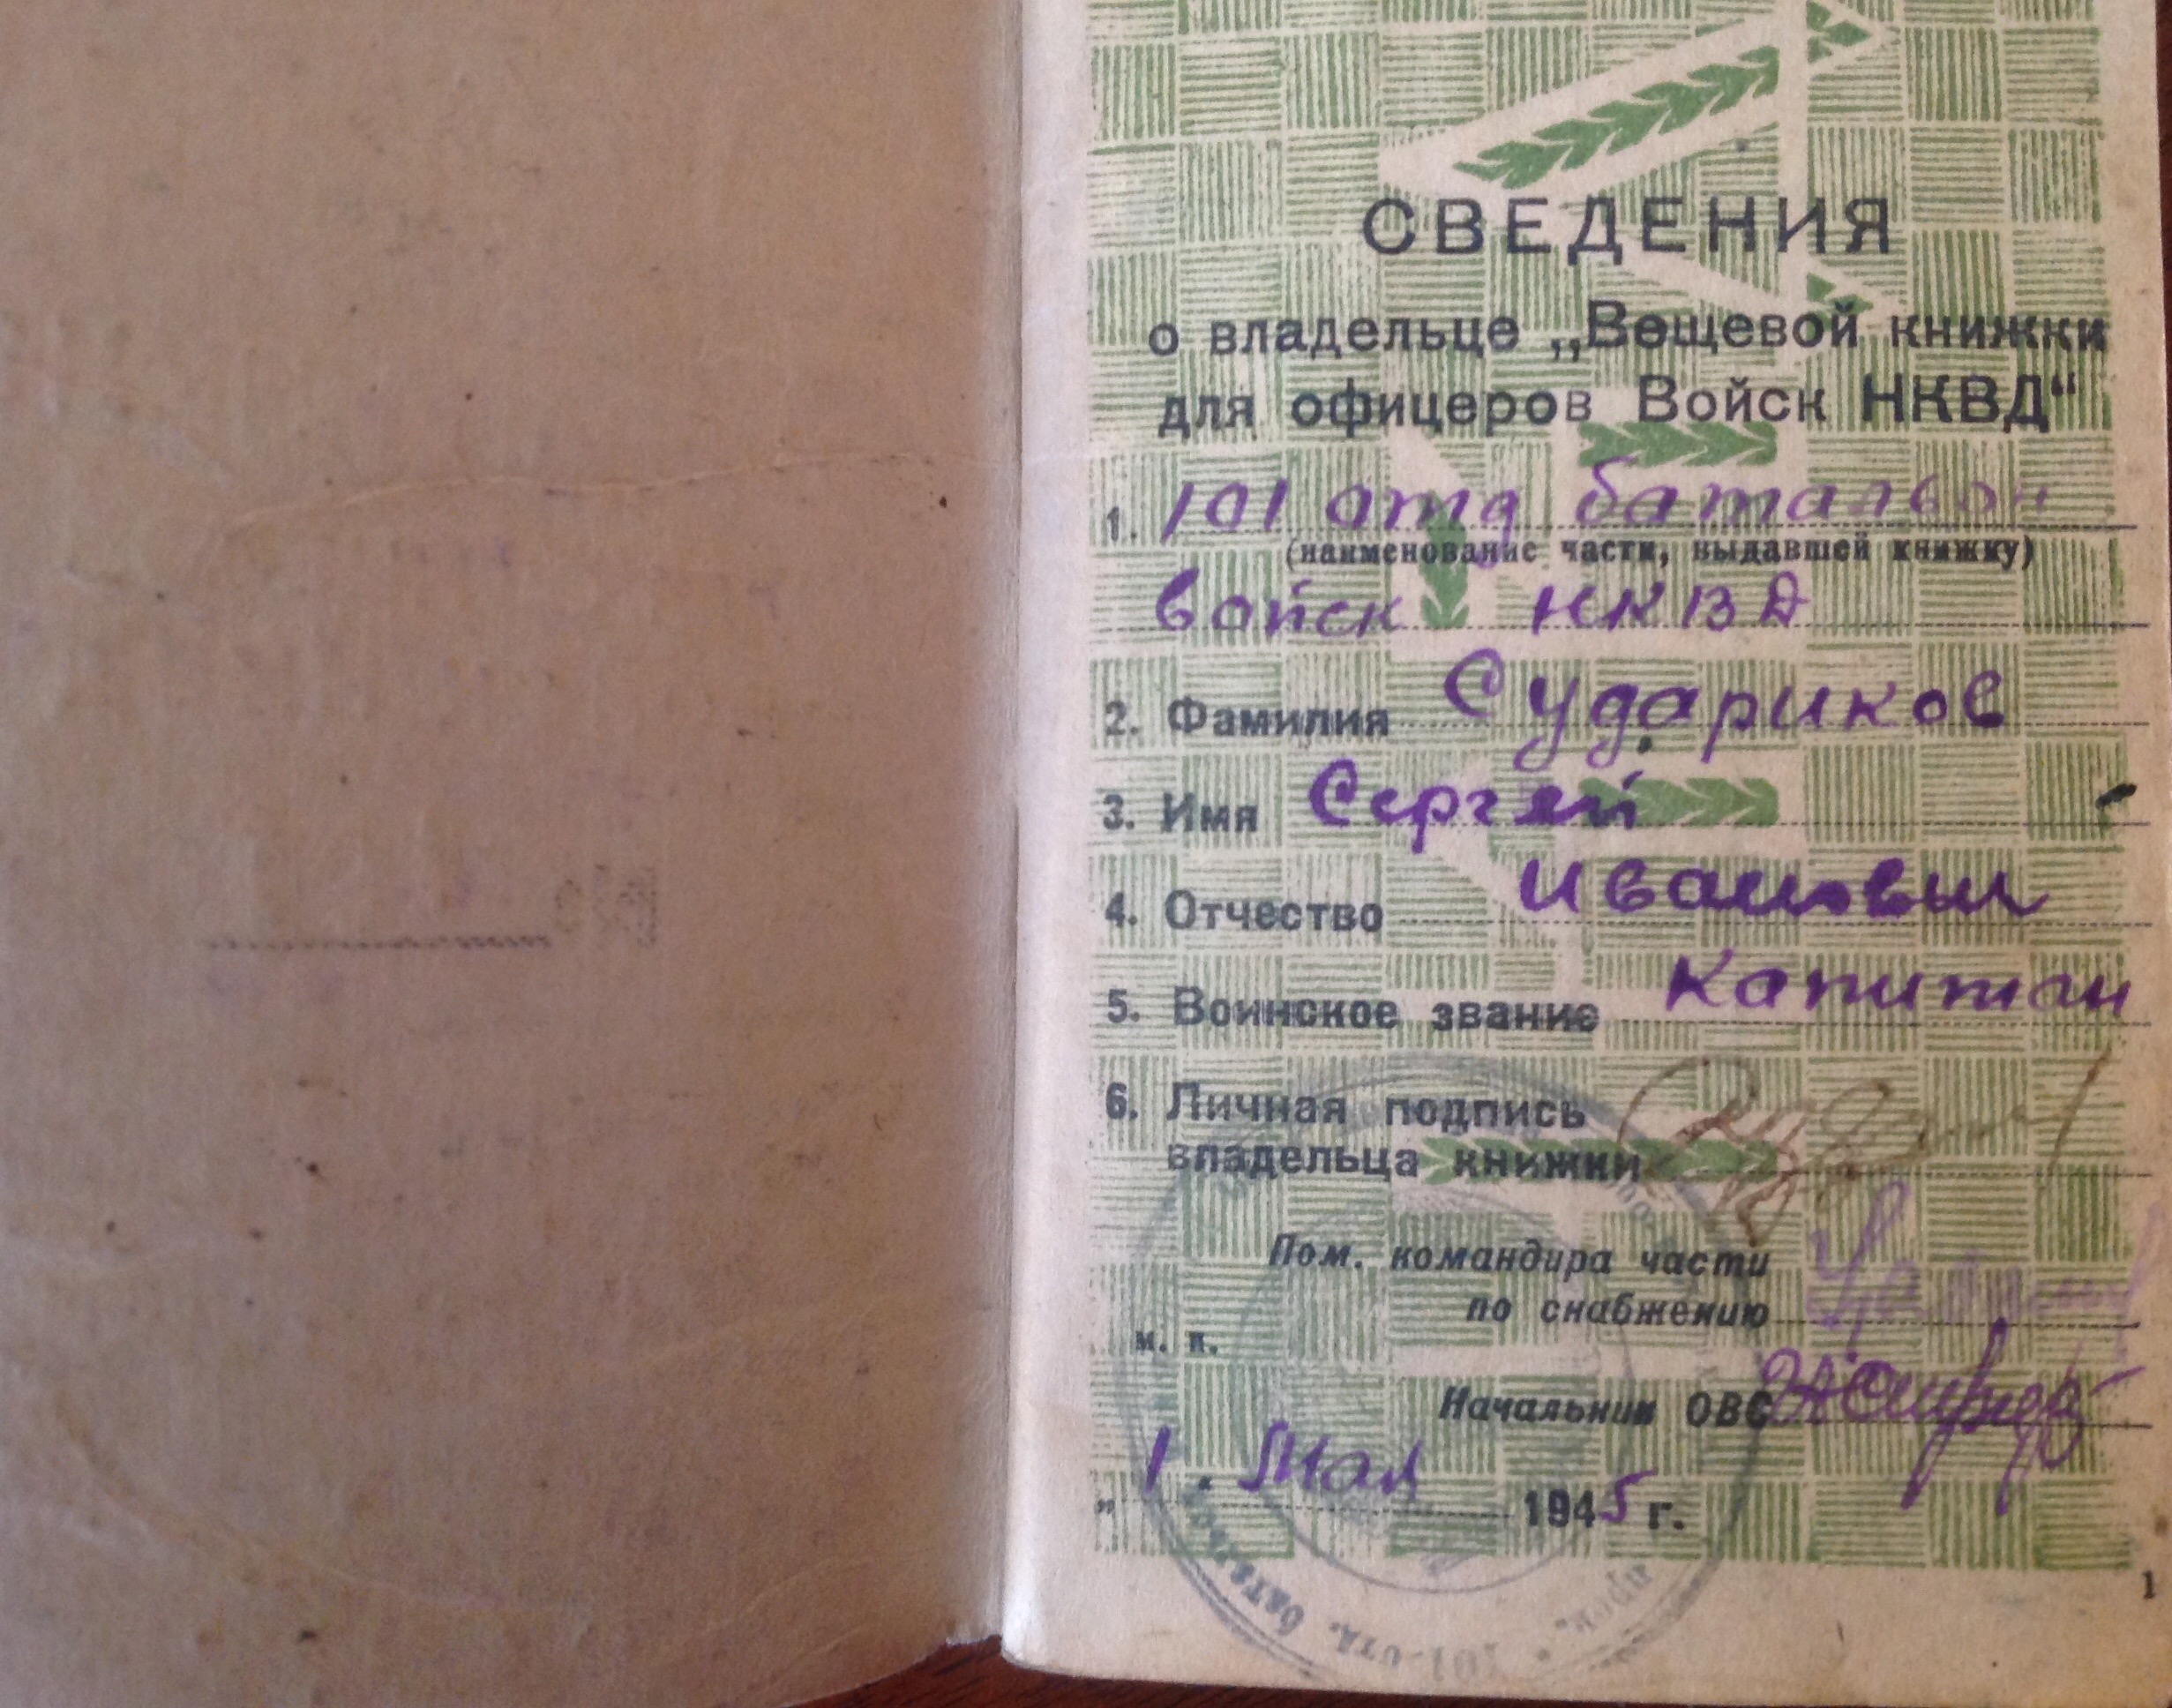 СВЕДЕНИЯ
о владельце „Вещевой книжки
для офицеров Войск НКВД“
1. 101 отд батальон
(наименование части, выдавшей книжку)
войск НКВД
2. Фамилия Судариков
3. Имя Сергей
4. Отчество Иванович
5. Воинское звание Капитан
6. Личная подпись
владельца книжки
Пом. командира части
по снабжению
м. п.
Начальник ОВС
„ 1 “ Мая 1945 г.
101-отд. батальон
1